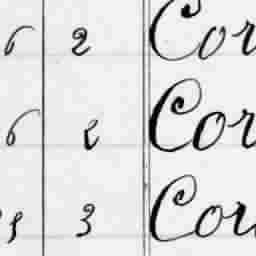 6 2 Cor
6 2 Cor
3 Cor